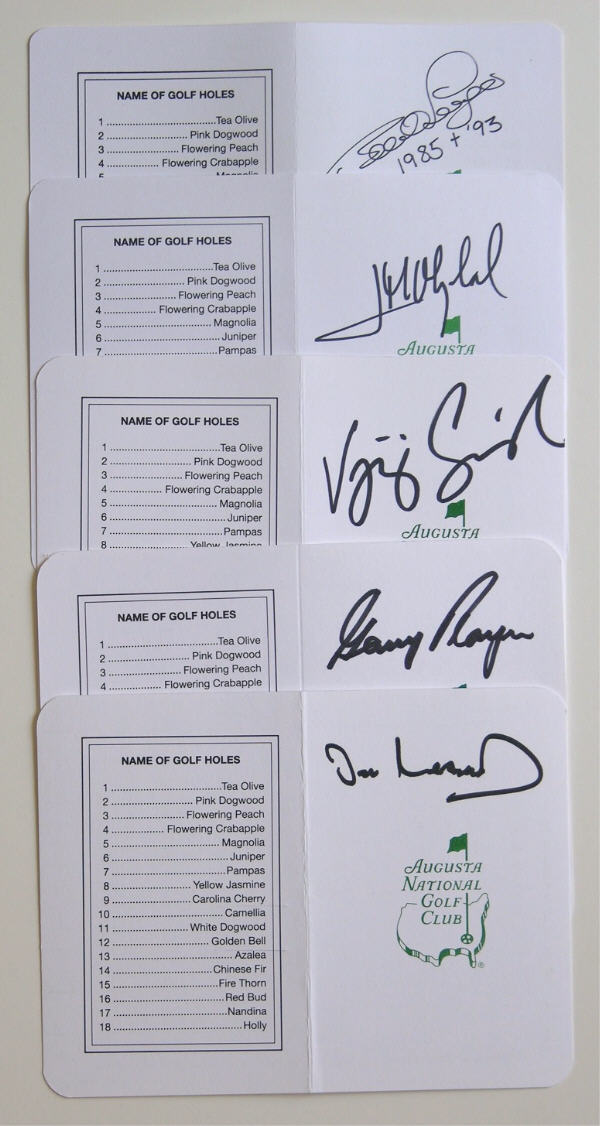 NAME OF GOLF HOLES
1 ........................................Tea Olive
2 ............................... Pink Dogwood
3 ......................... Flowering Peach
4 .................. Flowering Crabapple
5 Magnolia
1985 + '93
NAME OF GOLF HOLES
1 ........................................Tea Olive
2 ............................... Pink Dogwood
3 ......................... Flowering Peach
4 .................. Flowering Crabapple
5 ...................................... Magnolia
6 .......................................... Juniper
7 ......................................... Pampas
AUGUSTA
NAME OF GOLF HOLES
1 ........................................Tea Olive
2 ............................... Pink Dogwood
3 ......................... Flowering Peach
4 .................. Flowering Crabapple
5 ...................................... Magnolia
6 .......................................... Juniper
7 ......................................... Pampas
8 Yellow Jasmine
Vijay Singh
AUGUSTA
NAME OF GOLF HOLES
1 ........................................Tea Olive
2 ............................... Pink Dogwood
3 ......................... Flowering Peach
4 .................. Flowering Crabapple
Gary Player
NAME OF GOLF HOLES
1 ........................................Tea Olive
2 ............................... Pink Dogwood
3 ......................... Flowering Peach
4 .................. Flowering Crabapple
5 ...................................... Magnolia
6 .......................................... Juniper
7 ......................................... Pampas
8 ............................ Yellow Jasmine
9 ............................ Carolina Cherry
10 ...................................... Camellia
11 ........................... White Dogwood
12 ................................. Golden Bell
13 ......................................... Azalea
14 ..................................Chinese Fir
15 ....................................Fire Thorn
16 ...................................... Red Bud
17 .......................................Nandina
18 ............................................ Holly
AUGUSTA
NATIONAL
GOLF
CLUB
®